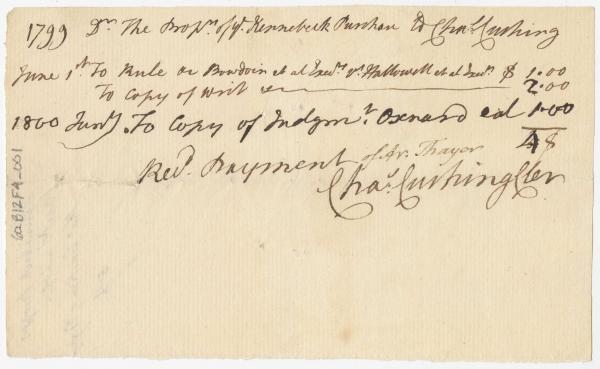 1799 Dr. The Props. of ye. Kennebeck Purchase to Chas. Cushing
June 1st. To Rule on Bowdoin et al Exrs. vs. Hallowell et al Exrs. $ 1.00
To Copy of writ 2.00
1800 Jany. To Copy of Judgmt. Oxnard &al 1.00
4 $
Recd. Payment of Mr. Thayer
Chas. Cushing Cler
62B12F4-001